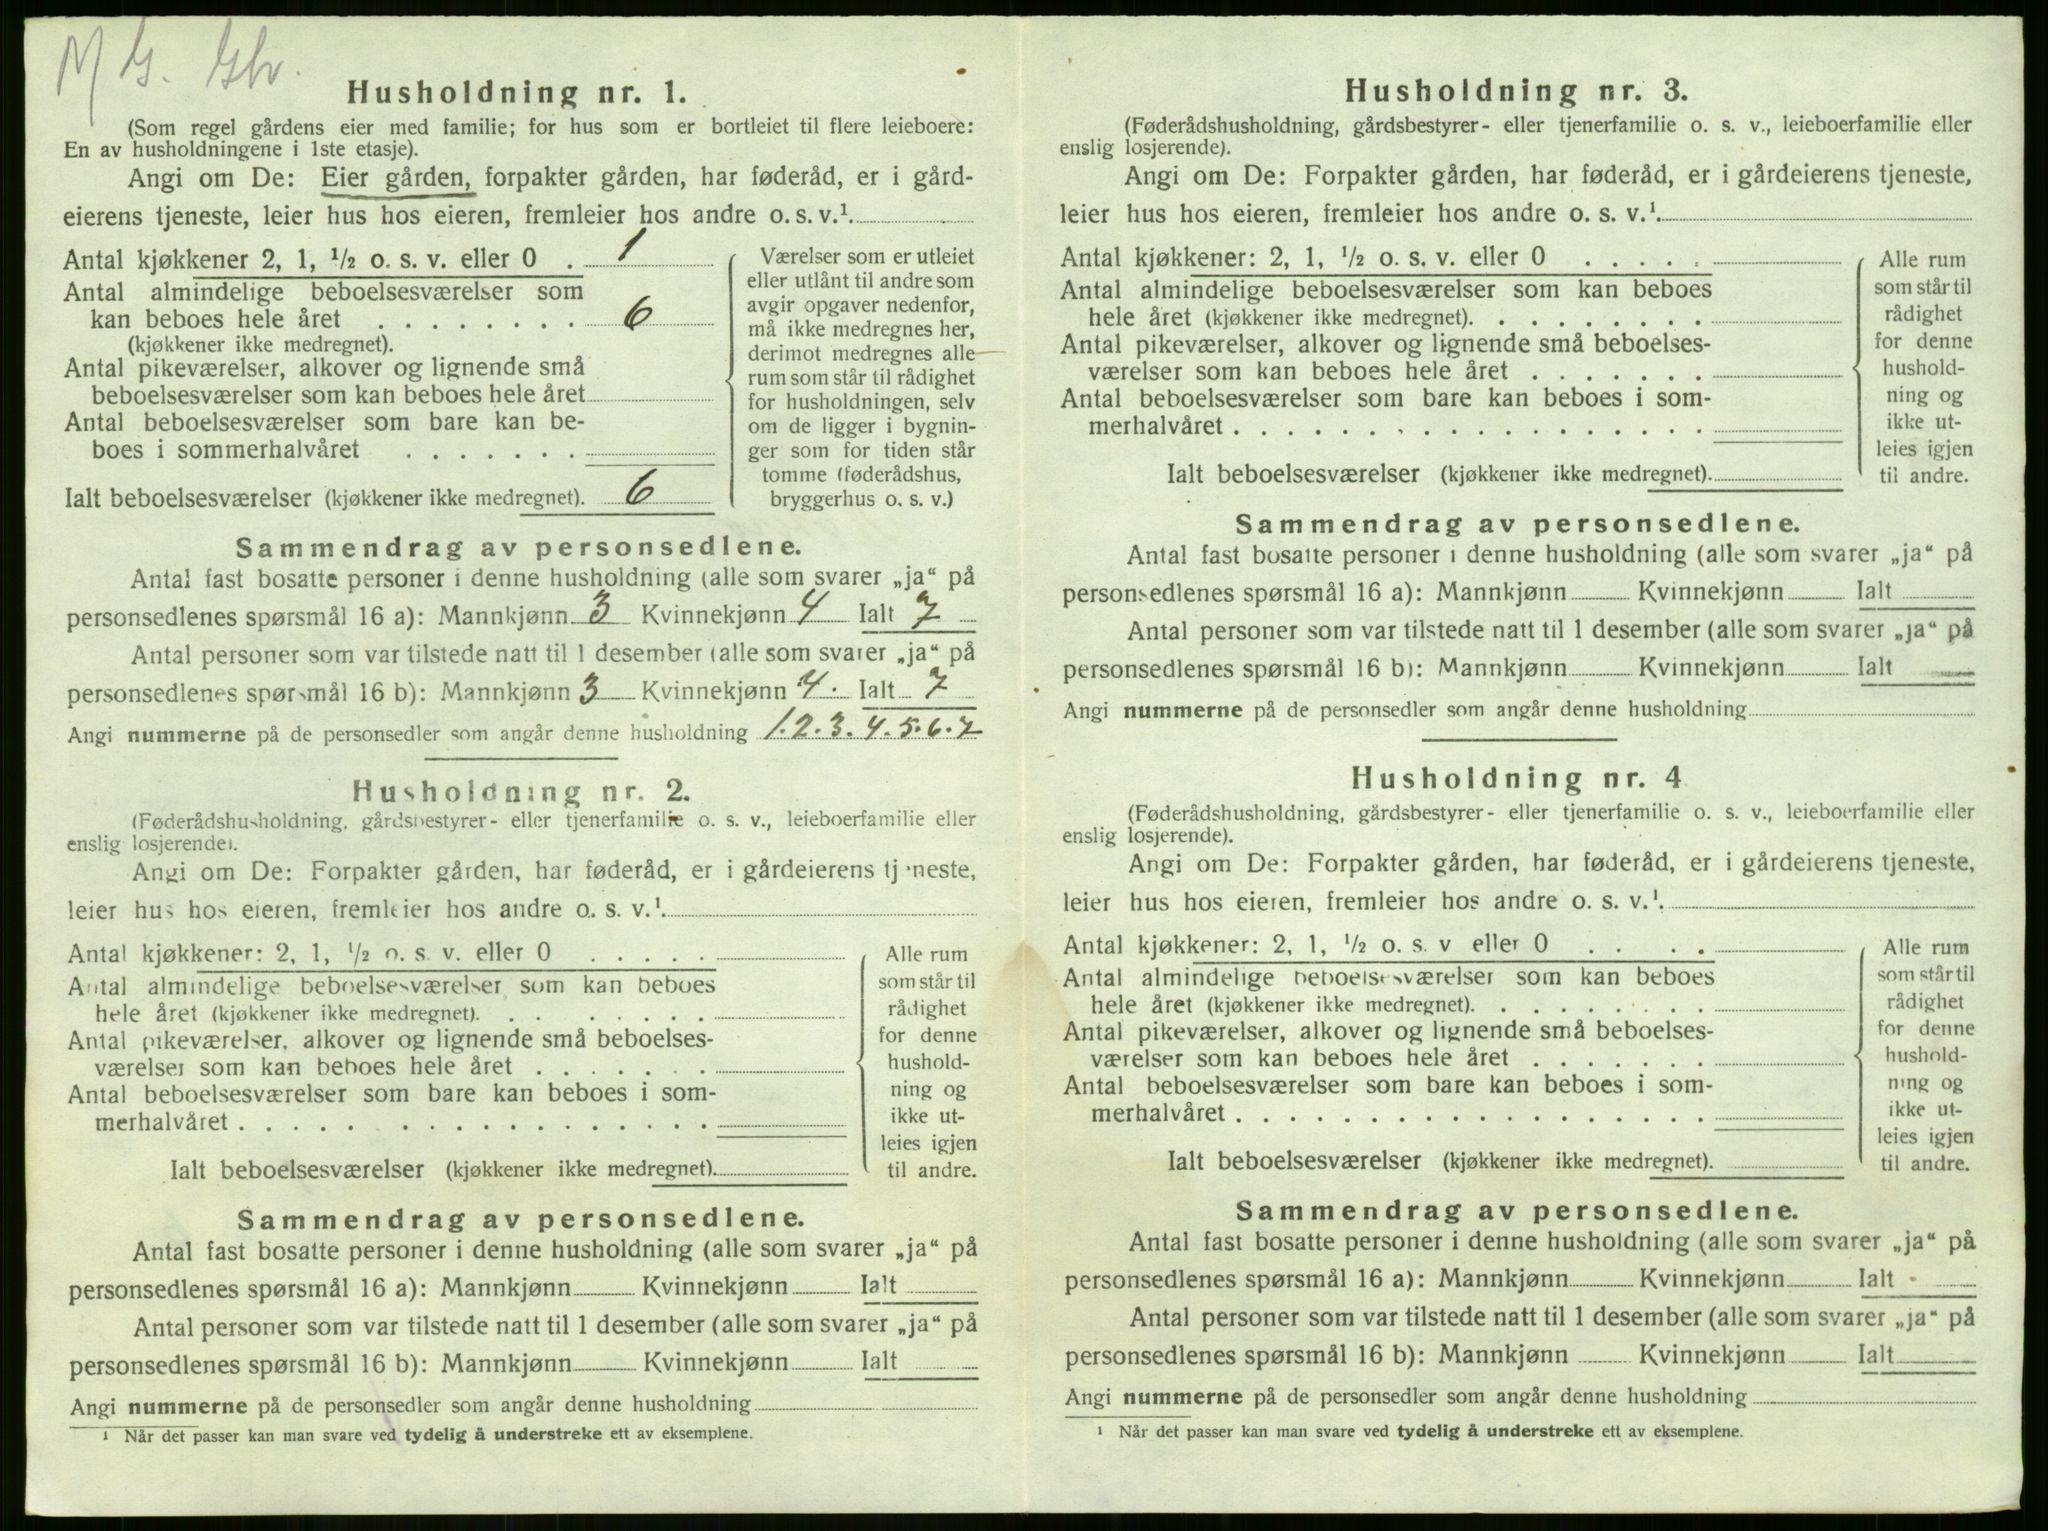 M G. Gbr.
Husholdning nr. 1.
(Som regel gårdens eier med familie; for hus som er bortleiet til flere leieboere:
En av husholdningene i 1ste etasje).
Angi om De: Eier gården, forpakter gården, har føderåd, er i gård-
eierens tjeneste, leier hus hos eieren, fremleier hos andre o. s. v.¹
Antal kjøkkener 2, 1, ½ o. s. v. eller 0 . 1
Antal almindelige beboelsesværelser som
kan beboes hele året . . . . . . . . 6
(kjøkkener ikke medregnet).
Antal pikeværelser, alkover og lignende små
beboelsesværelser som kan beboes hele året
Antal beboelsesværelser som bare kan be-
boes i sommerhalvåret . . . . . . .
Ialt beboelsesværelser (kjøkkener ikke medregnet). 6
Værelser som er utleiet
eller utlånt til andre som
avgir opgaver nedenfor,
må ikke medregnes her,
derimot medregnes alle
rum som står til rådighet
for husholdningen, selv
om de ligger i bygnin-
ger som for tiden står
tomme (føderådshus,
bryggerhus o. s. v.)
Sammendrag av personsedlene.
Antal fast bosatte personer i denne husholdning (alle som svarer „ja“ på
personsedlenes spørsmål 16 a): Mannkjønn 3 Kvinnekjønn 4 Ialt 7
Antal personer som var tilstede natt til 1 desember (alle som svarer „ja“ på
personsedlenes spørsmål 16 b): Mannkjønn 3 Kvinnekjønn 4. Ialt 7
Angi nummerne på de personsedler som angår denne husholdning 1.2.3.4.5.6.7
Husholdning nr. 2.
(Føderådshusholdning, gårdsbestyrer- eller tjenerfamilie o. s. v., leieboerfamilie eller
enslig losjerende).
Angi om De: Forpakter gården, har føderåd, er i gårdeierens tjeneste,
leier hus hos eieren, fremleier hos andre o. s. v.¹
Antal kjøkkener: 2, 1, ½ o. s. v. eller 0 . . . . .
Antal almindelige beboelsesværelser som kan beboes
hele året (kjøkkener ikke medregnet). . . . . . . .
Antal pikeværelser, alkover og lignende små beboelses-
værelser som kan beboes hele året . . . . . . .
Antal beboelsesværelser som bare kan beboes i som-
merhalvåret . . . . . . . . . . . . . . . . . .
Ialt beboelsesværelser (kjøkkener ikke medregnet).
Alle rum
som står til
rådighet
for denne
hushold-
ning og
ikke ut-
leies igjen
til andre.
Sammendrag av personsedlene.
Antal fast bosatte personer i denne husholdning (alle som svarer „ja“ på
personsedlenes spørsmål 16 a): Mannkjønn Kvinnekjønn Ialt
Antal personer som var tilstede natt til 1 desember (alle som svarer „ja“ på
personsedlenes spørsmål 16 b): Mannkjønn Kvinnekjønn Ialt
Angi nummerne på de personsedler som angår denne husholdning
¹ Når det passer kan man svare ved tydelig å understreke ett av eksemplene.
Husholdning nr. 3.
(Føderådshusholdning, gårdsbestyrer- eller tjenerfamilie o. s. v., leieboerfamilie eller
enslig losjerende).
Angi om De: Forpakter gården, har føderåd, er i gårdeierens tjeneste,
leier hus hos eieren, fremleier hos andre o. s. v.¹.
Antal kjøkkener: 2, 1, ½ o. s. v. eller 0 . . . . .
Antal almindelige beboelsesværelser som kan beboes
hele året (kjøkkener ikke medregnet). . . . . . . . .
Antal pikeværelser, alkover og lignende små beboelses-
værelser som kan beboes hele året . . . . . . .
Antal beboelsesværelser som bare kan beboes i som-
merhalvåret . . . . . . . . . . . . . . . . . .
Ialt beboelsesværelser (kjøkkener ikke medregnet).
Alle rum
som står til
rådighet
for denne
hushold-
ning og
ikke ut-
leies igjen
til andre.
Sammendrag av personsedlene.
Antal fast bosatte personer i denne husholdning (alle som svarer „ja“ på
personsedlenes spørsmål 16 a): Mannkjønn Kvinnekjønn Ialt
Antal personer som var tilstede natt til 1 desember (alle som svarer „ja“ på
personsedlenes spørsmål 16 b): Mannkjønn Kvinnekjønn Ialt
Angi nummerne på de personsedler som angår denne husholdning
Husholdning nr. 4
(Føderådshusholdning, gärdsbestyrer- eller tjenerfamilie o. s. v., leieboerfamilie eller
enslig losjerende).
Angi om De: Forpakter gården, har føderåd, er i gårdeierens tjeneste,
leier hus hos eieren, fremleier hos andre o. s. v.¹.
Antal kjøkkener: 2, 1, ½ o. s. v eller 0 . . . .
Antal almindelige beboelsesværelser som kan beboes
hele året (kjøkkener ikke medregnet). . . . . . . . .
Antal pikeværelser, alkover og lignende små beboelses-
værelser som kan beboes hele året . . . . . . .
Antal beboelsesværelser som bare kan beboes i som-
merhalvåret . . . . . . . . . . . . . . . . . .
Ialt beboelsesværelser (kjøkkener ikke medregnet).
Alle rum
som står til
rådighet
for denne
hushold-
ning og
ikke ut-
leies igjen
til andre.
Sammendrag av personsedlene.
Antal fast bosatte personer i denne husholdning (alle som svarer „ja“ på
personsedlenes spørsmål 16 a): Mannkjønn Kvinnekjønn Ialt
Antal personer som var tilstede natt til 1 desember (alle som svarer „ja“ på
personsedlenes spørsmål 16 b): Mannkjønn Kvinnekjønn Ialt
Angi nummerne på de personsedler som angår denne husholdning
¹ Når det passer kan man svare ved tydelig å understreke ett av eksemplene.